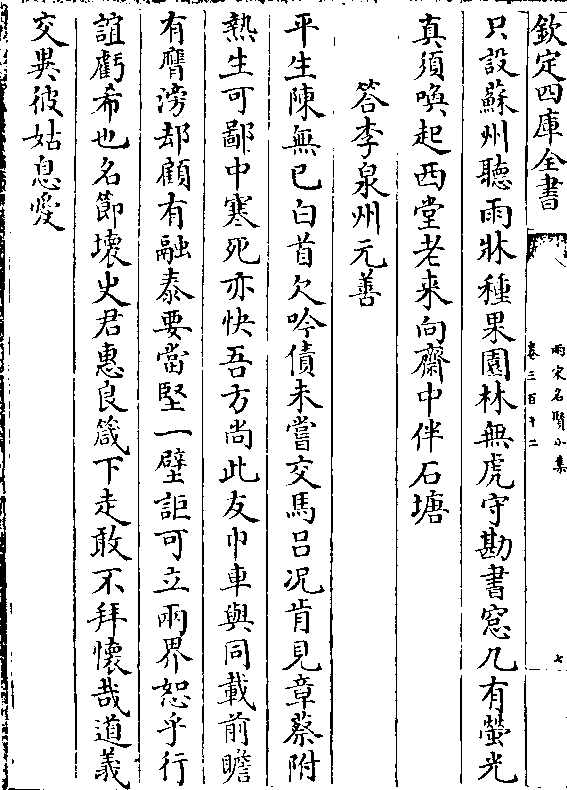 欽定四庫全書
兩宋名賢小集
卷三百十二
七
只設蘇州聽雨牀種果園林無虎守勘書窓几有螢光
真須喚起西堂老來向齋中伴石塘
答李泉州元善
平生陳無已白首欠吟債未嘗交馬吕况肯見章蔡附
熱生可鄙中寒死亦快吾方尚此友巾車與同載前瞻
有膺滂却顧有融泰要當堅一壁詎可立兩界恕乎行
誼虧希也名節壞史君惠良箴下走敢不拜懷哉道義
交異彼姑息愛